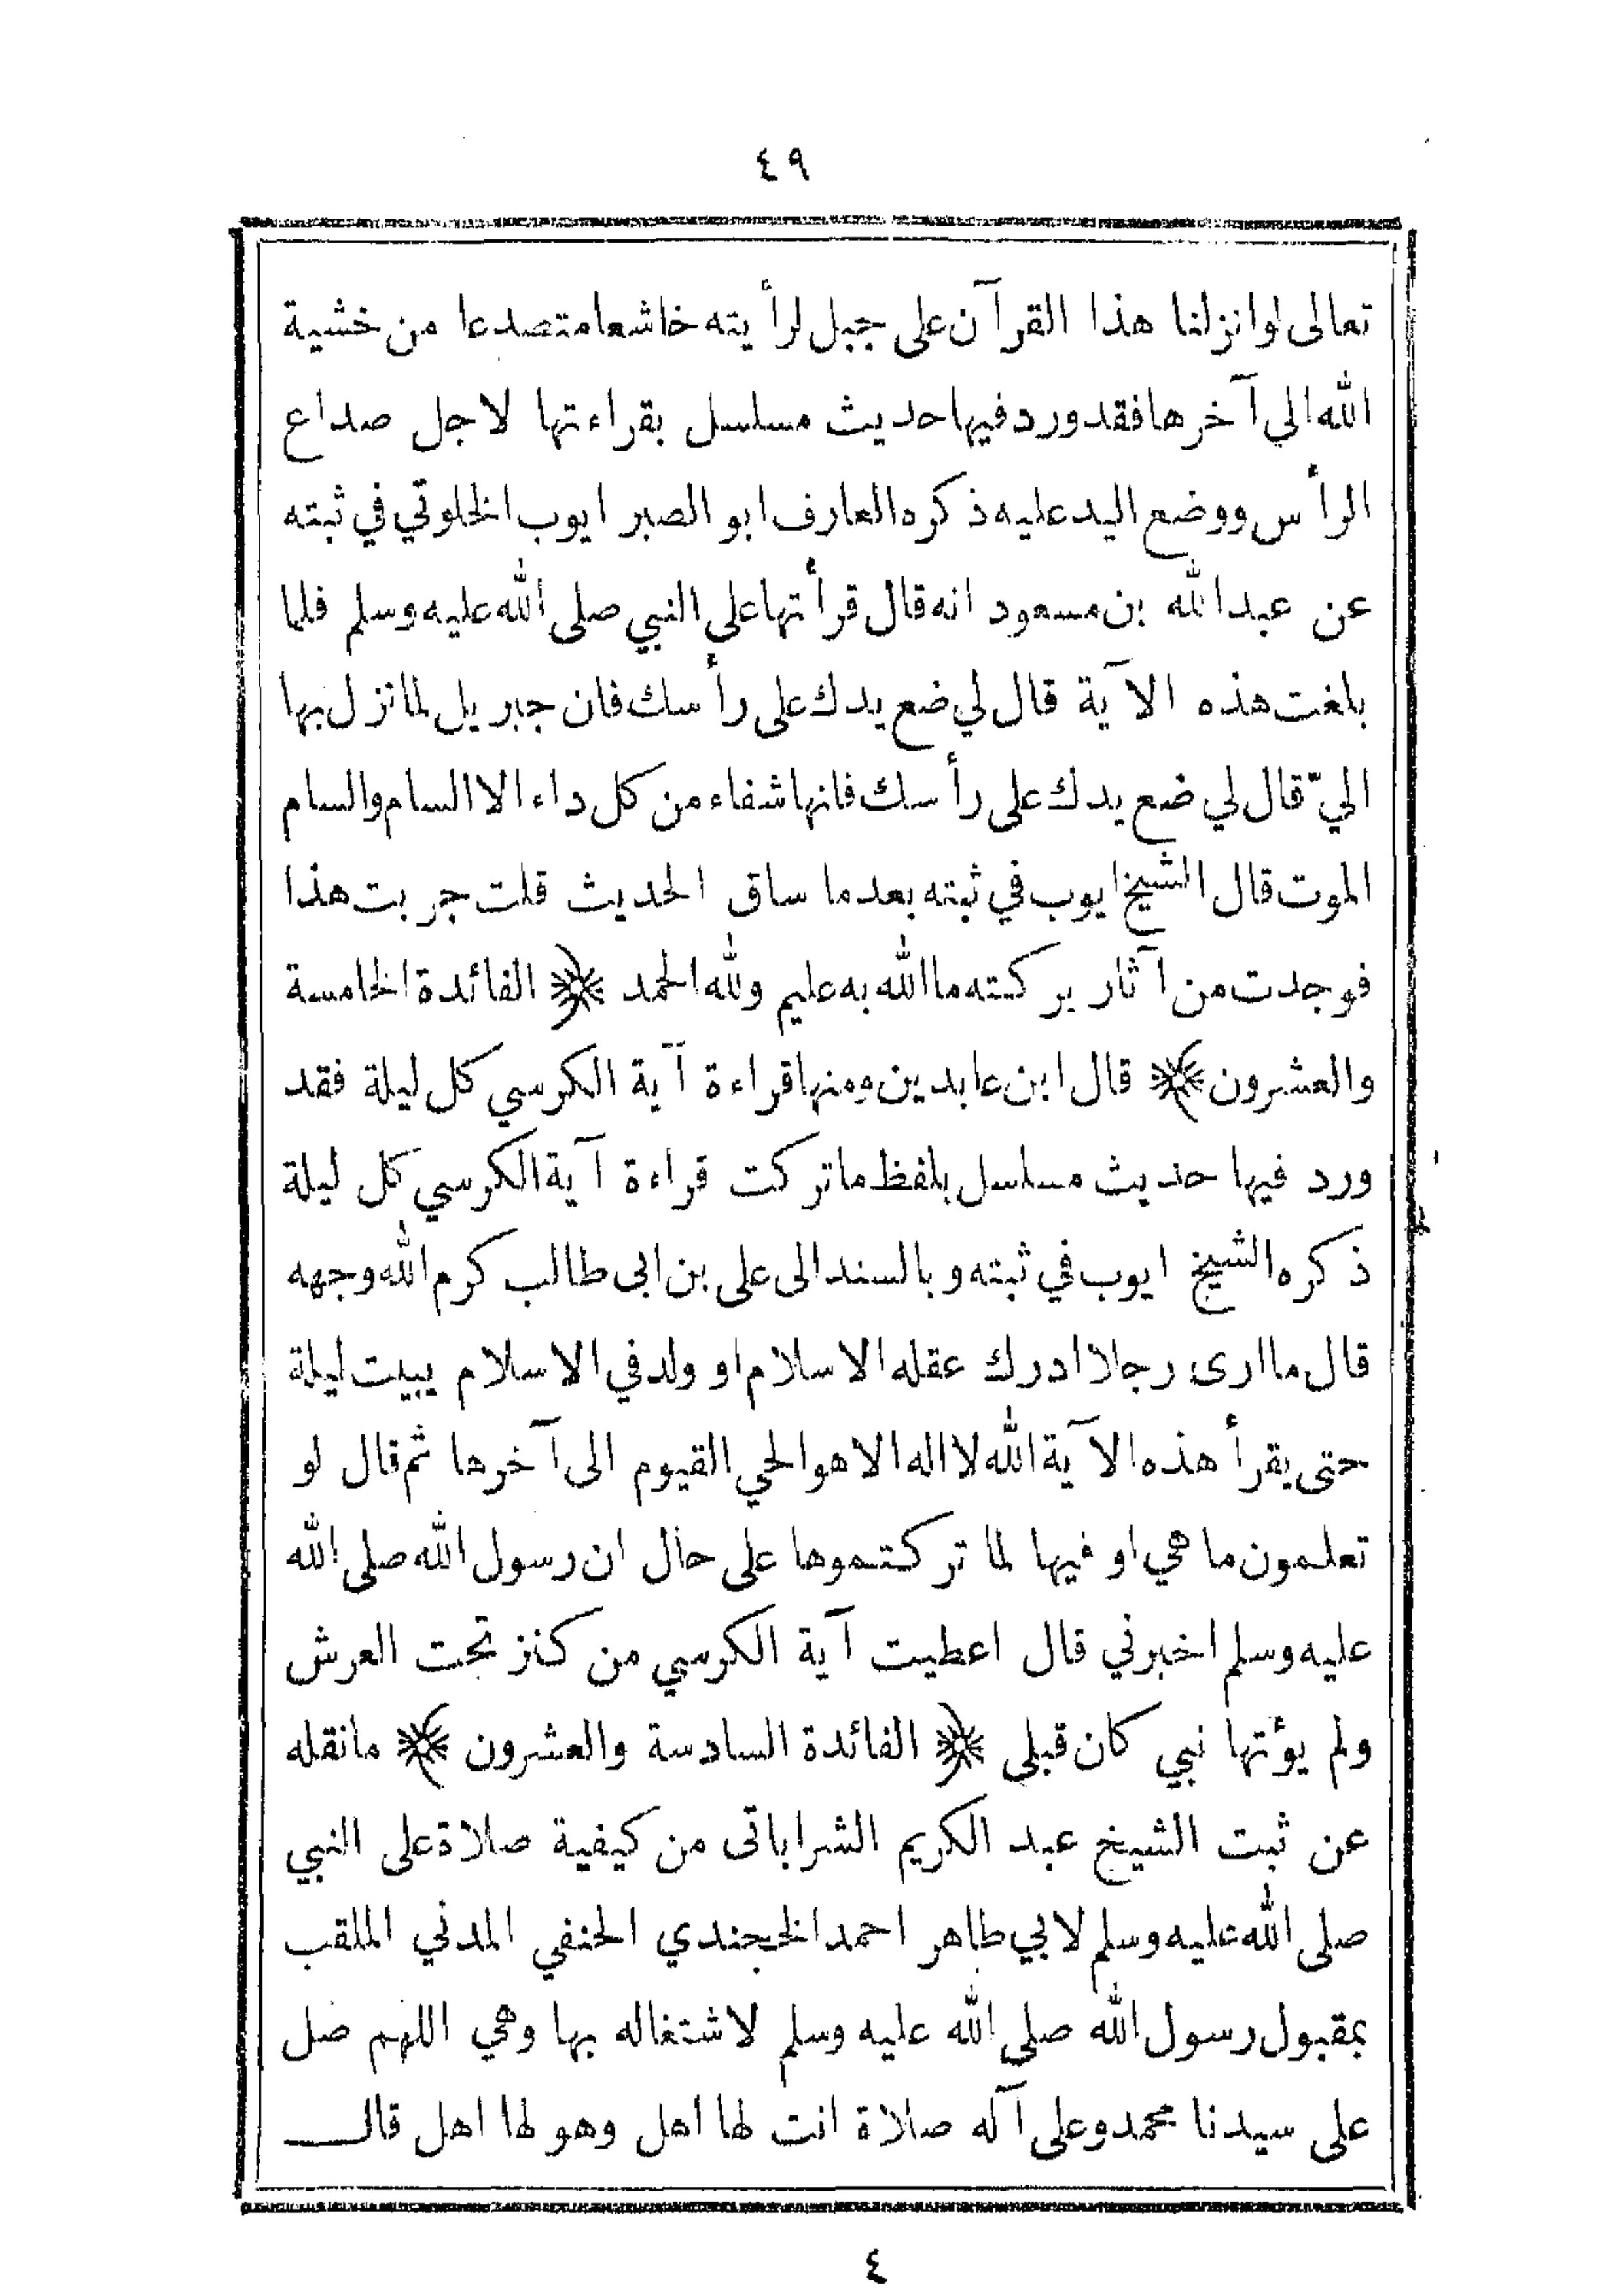 ٤٩
تعالى لو انزلنا هذا القرآن على جبل لرأيته خاشعا متصدعا من خشية
الله الى آخرها فقد ورد فيها حديث مسلسل بقراءتها لاجل صداع
الرأس ووضع اليد عليه ذكره العارف ابو الصبر ايوب الخلوتي في ثبته
عن عبد الله بن مسعود انه قال قرأتها على النبي صلى الله عليه وسلم فلما
بلغت هذه الآية قال لي ضع يدك على رأسك فان جبريل لما نزل بها
اليّ قال لي ضع يدك على رأسك فانها شفاء من كل داء الا السام والسام
الموت قال الشيخ ايوب في ثبته بعد ما ساق الحديث قلت جربت هذا
فوجدت من آثار بركته ما الله به عليم ولله الحمد ﴿ الفائدة الخامسة
والعشرون ﴾ قال ابن عابدين ومنها قراءة آية الكرسي كل ليلة فقد
ورد فيها حديث مسلسل بلفظ ما تركت قراءة آية الكرسي كل ليلة
ذكره الشيخ ايوب في ثبته وبالسند الى على بن ابى طالب كرم الله وجهه
قال ما ارى رجلا ادرك عقله الاسلام او ولد في الاسلام يبيت ليلة
حتى يقرأ هذه الآية الله لا اله الا هو الحي القيوم الى آخرها ثم قال لو
تعلمون ما هي او فيها لما تركتموها على حال ان رسول الله صلى الله
عليه وسلم اخبرني قال اعطيت آية الكرسي من كنز تحت العرش
ولم يؤتها نبي كان قبلى ﴿ الفائدة السادسة والعشرون ﴾ ما نقله
عن ثبت الشيخ عبد الكريم الشراباتى من كيفية صلاة على النبي
صلى الله عليه وسلم لابي طاهر احمد الخجندي الحنفي المدني الملقب
بمقبول رسول الله صلى الله عليه وسلم لاشتغاله بها وهي اللهم صل
على سيدنا محمد وعلى آله صلاة انت لها اهل وهو لها اهل قال
٤